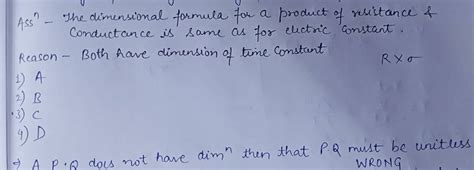 Assⁿ - The dimensional formula for a product of resistance &
Conductance is same as for electric constant.
Reason - Both have dimension of time constant
R×σ
1) A
2) B
3) C
4) D
⇒ A P.Q does not have dimⁿ then that P.Q must be unitless
WRONG